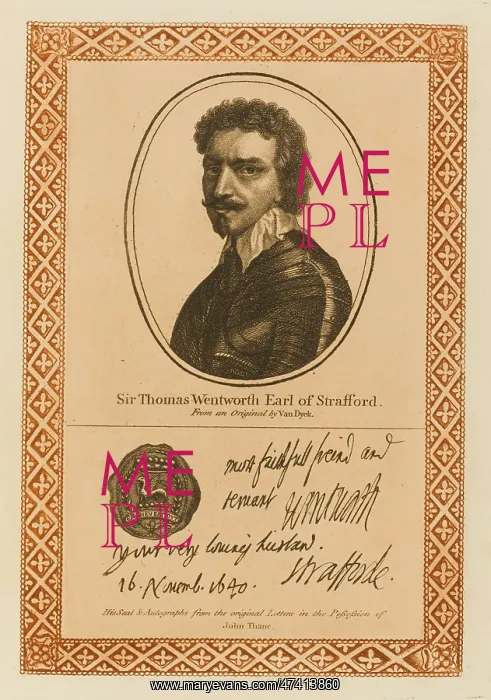 ME
PL
Sir Thomas Wentworth Earl of Strafford.
From an Original by Van Dyck.
ME
PL
most faithfull freind and
servant Wentworth
your very loving husban.
16. Novemb. 1640. Strafforde.
His Seal & Autographs from the original Letters in the Possession of
John Thane.
www.maryevans.com/47413860